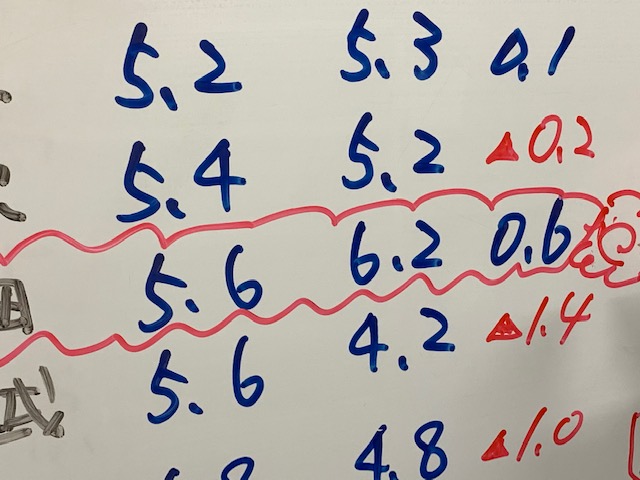 5.2 5.3 0.1
5.4 5.2 ▲0.2
5.6 6.2 0.6
式 5.6 4.2 ▲1.4
4.8 ▲1.0